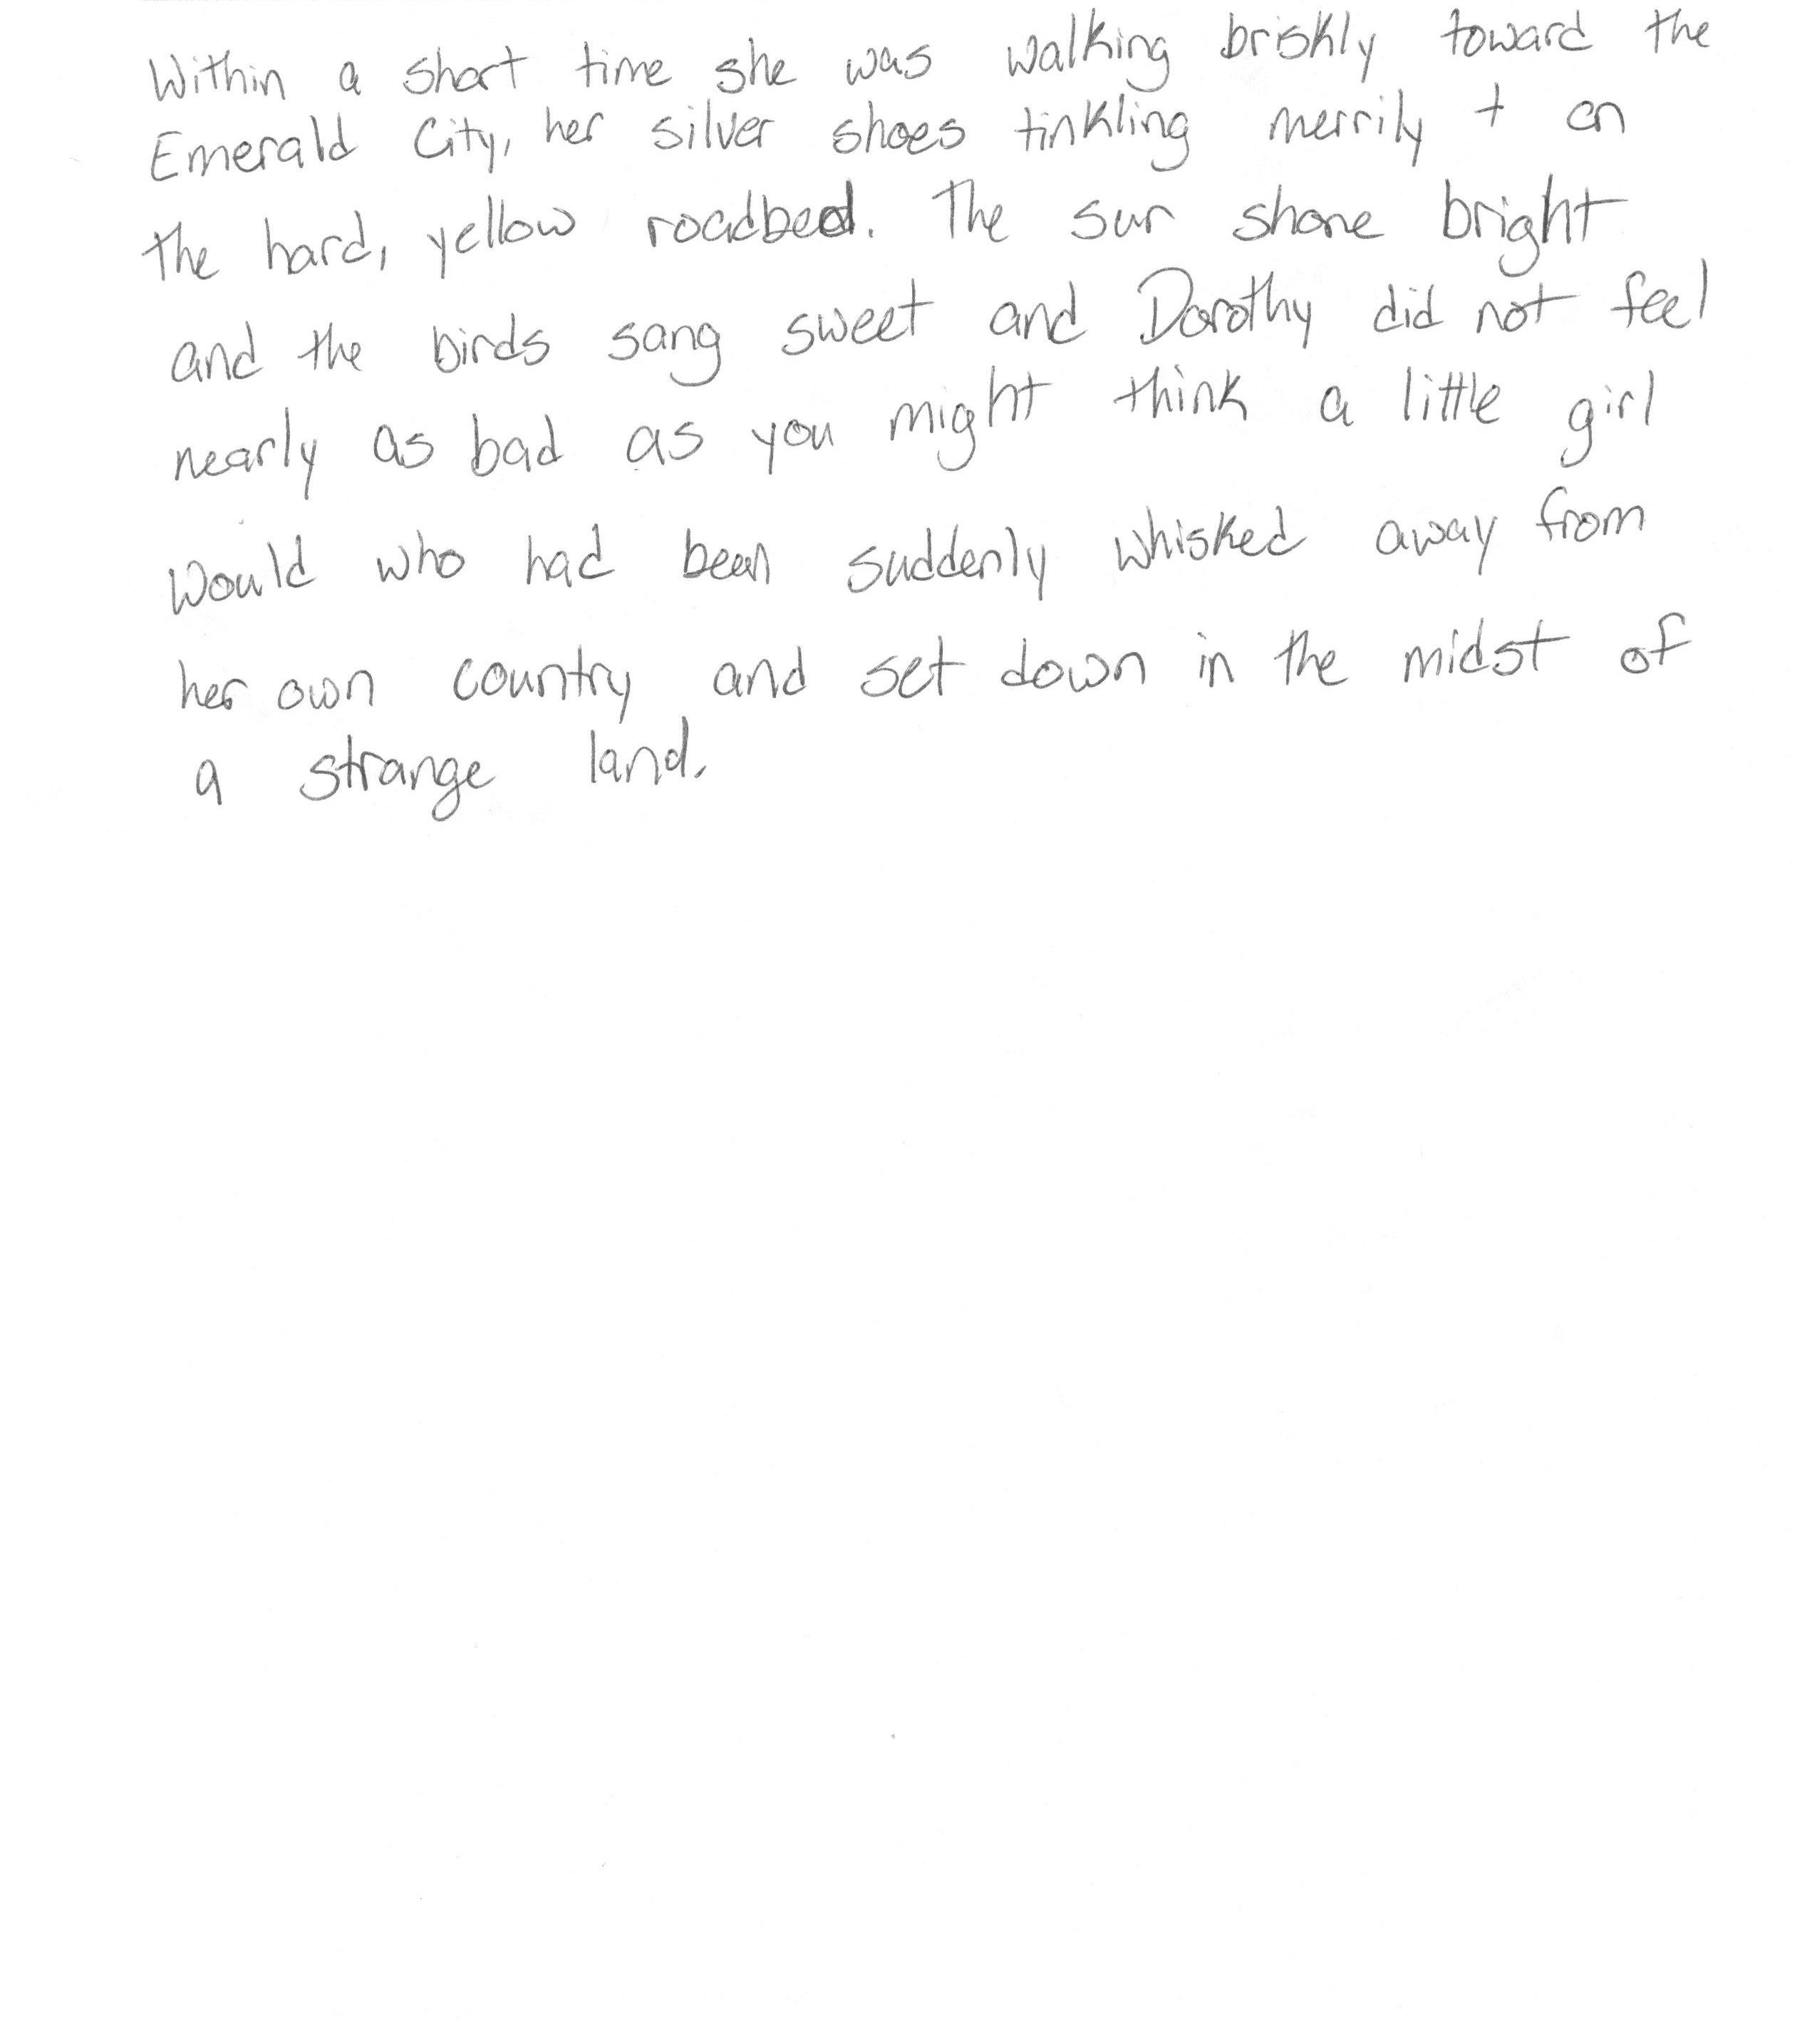 Within a short time she was walking briskly toward the
Emerald City, her silver shoes tinkling merrily + on
the hard, yellow roadbed. The sun shone bright
and the birds sang sweet and Dorothy did not feel
nearly as bad as you might think a little girl
would who had been suddenly whisked away from
her own country and set down in the midst of
a strange land.